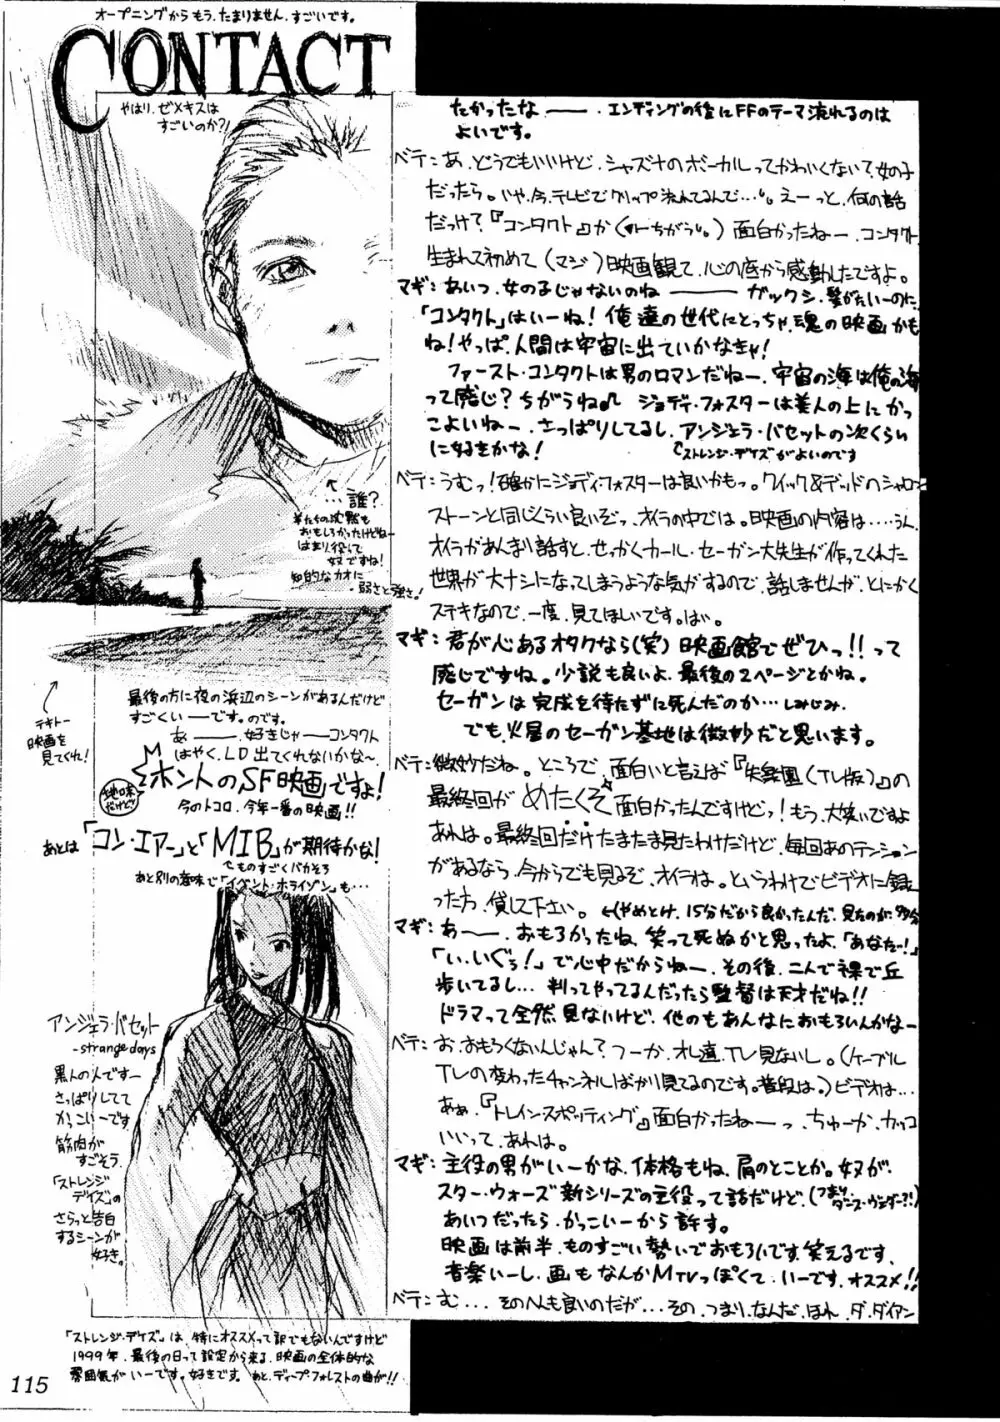 オープニングからもう、たまりません、すごいです。
CONTACT
やはり、ゼメキスは
すごいのか?!
↑
…誰?
羊たちの沈黙も
おもしろかったけどねー
はまり役して
奴ですね!
知的なカオに
弱さと強さ!
テキトー
映画を
見てくれ!
最後の方に夜の浜辺のシーンがあるんだけど
すごくいーです。のです。
あー、好きじゃーコンタクト
はやく、LD出てくれないかな〜、
ホントのSF映画ですよ!
地味だけど
今のトコロ、今年一番の映画!!
あとは「コン・エアー」と「MIB」が期待かな!
ものすごくバカそう
あと別の意味で「イベント・ホライゾン」も…
アンジェラ・バセット
-strange days
黒人の人ですー
さっぱりしてて
かっこいーです
筋肉が
すごそう。
「ストレンジ
デイズ」の
さらっと告白
するシーンが
好き。
「ストレンジ・デイズ」は、特にオススメって訳でもないんですけど
1999年、最後の日って設定から来る、映画の全体的な
雰囲気がいーです。好きです。あと、ディープ・フォレストの曲が!!
115
たかったなー、エンディングの後にFFのテーマ流れるのは
よいです。
ベテ:あ、どうでもいいけど、シャズナのボーカルってかわいくない?女の子
だったら。いや、今、テレビでクリップ流れてるんで…。えーっと、何の話
だっけ?『コンタクト』か(←ちがう。)面白かったねー、コンタクト
生まれて初めて(マジ)映画観て、心の底から感動したですよ。
マギ:あいつ、女の子じゃないのねー ガックシ、髪がいーのに
「コンタクト」はいーね!俺達の世代にとっちゃ、魂の映画かも
ね!やっぱ、人間は宇宙に出ていかなきゃ!
ファースト・コンタクトは男のロマンだねー、宇宙の海は俺の海
って感じ?ちがうね♪ ジョディ・フォスターは美人の上にかっ
こよいねー、さっぱりしてるし、アンジェラ・バセットの次くらい
に好きかな!
「ストレンジ・デイズ」がよいのです
ベテ:うむっ!確かにジョディ・フォスターは良いかもっ。クイック&デッドのシャロン
ストーンと同じくらい良いぞっ、オイラの中では。映画の内容は……うん、
オイラがあんまり話すと、せっかくカール・セーガン大先生が作ってくれた
世界が大ナシになってしまうような気がするので、話しませんが、とにかく
ステキなので、一度、見てほしいです。はい。
マギ:君が心あるオタクなら(笑)映画館でぜひっ!!って
感じですね。小説も良いよ、最後の2ページとかね。
セーガンは完成を待たずに死んだのか…しみじみ。
でも、火星のセーガン基地は微妙だと思います。
ベテ:微妙だね。ところで、面白いと言えば『失楽園(TV版)』の
最終回がめたくそ面白かったんですけどっ!もう、大笑いですよ
あれは。最終回だけたまたま見たわけだけど、毎回あのテンション
があるなら、今からでも見るぞ、オイラは。というわけでビデオに録
った方、貸して下さい。←(やめとけ、15分だから良かったんだ、見たのが
マギ:あー、おもろかったね、笑って死ぬかと思ったよ、「あなた!」
「い、いくぅ!」で心中だからねー、その後、二人で裸で丘
歩いてるし…判ってやってるんだったら監督は天才だね!!
ドラマって全然、見ないけど、他のもあんなにおもろいんかなー
ベテ:お、おもろくないんじゃん?つーか、オレ達、TV見ないし。(ケーブル
TVの変わったチャンネルばかり見てるのです。普段は。)ビデオは…
あぁ、『トレインスポッティング』面白かったねーっ、ちゅーか、カッコ
いいって、あれは。
マギ:主役の男がいーかな、体格もね、肩のとことか。奴が、
スター・ウォーズ新シリーズの主役って話だけど、
あいつだったら、かっこいーから許す。
映画は前半、ものすごい勢いでおもろいです、笑えるです、
音楽いーし、画もなんかMTVっぽくて、いーです、オススメ!!
ベテ:む…、そのへんも良いのだが…その、つまり、なんだ、ほれ、ダ、ダイアン